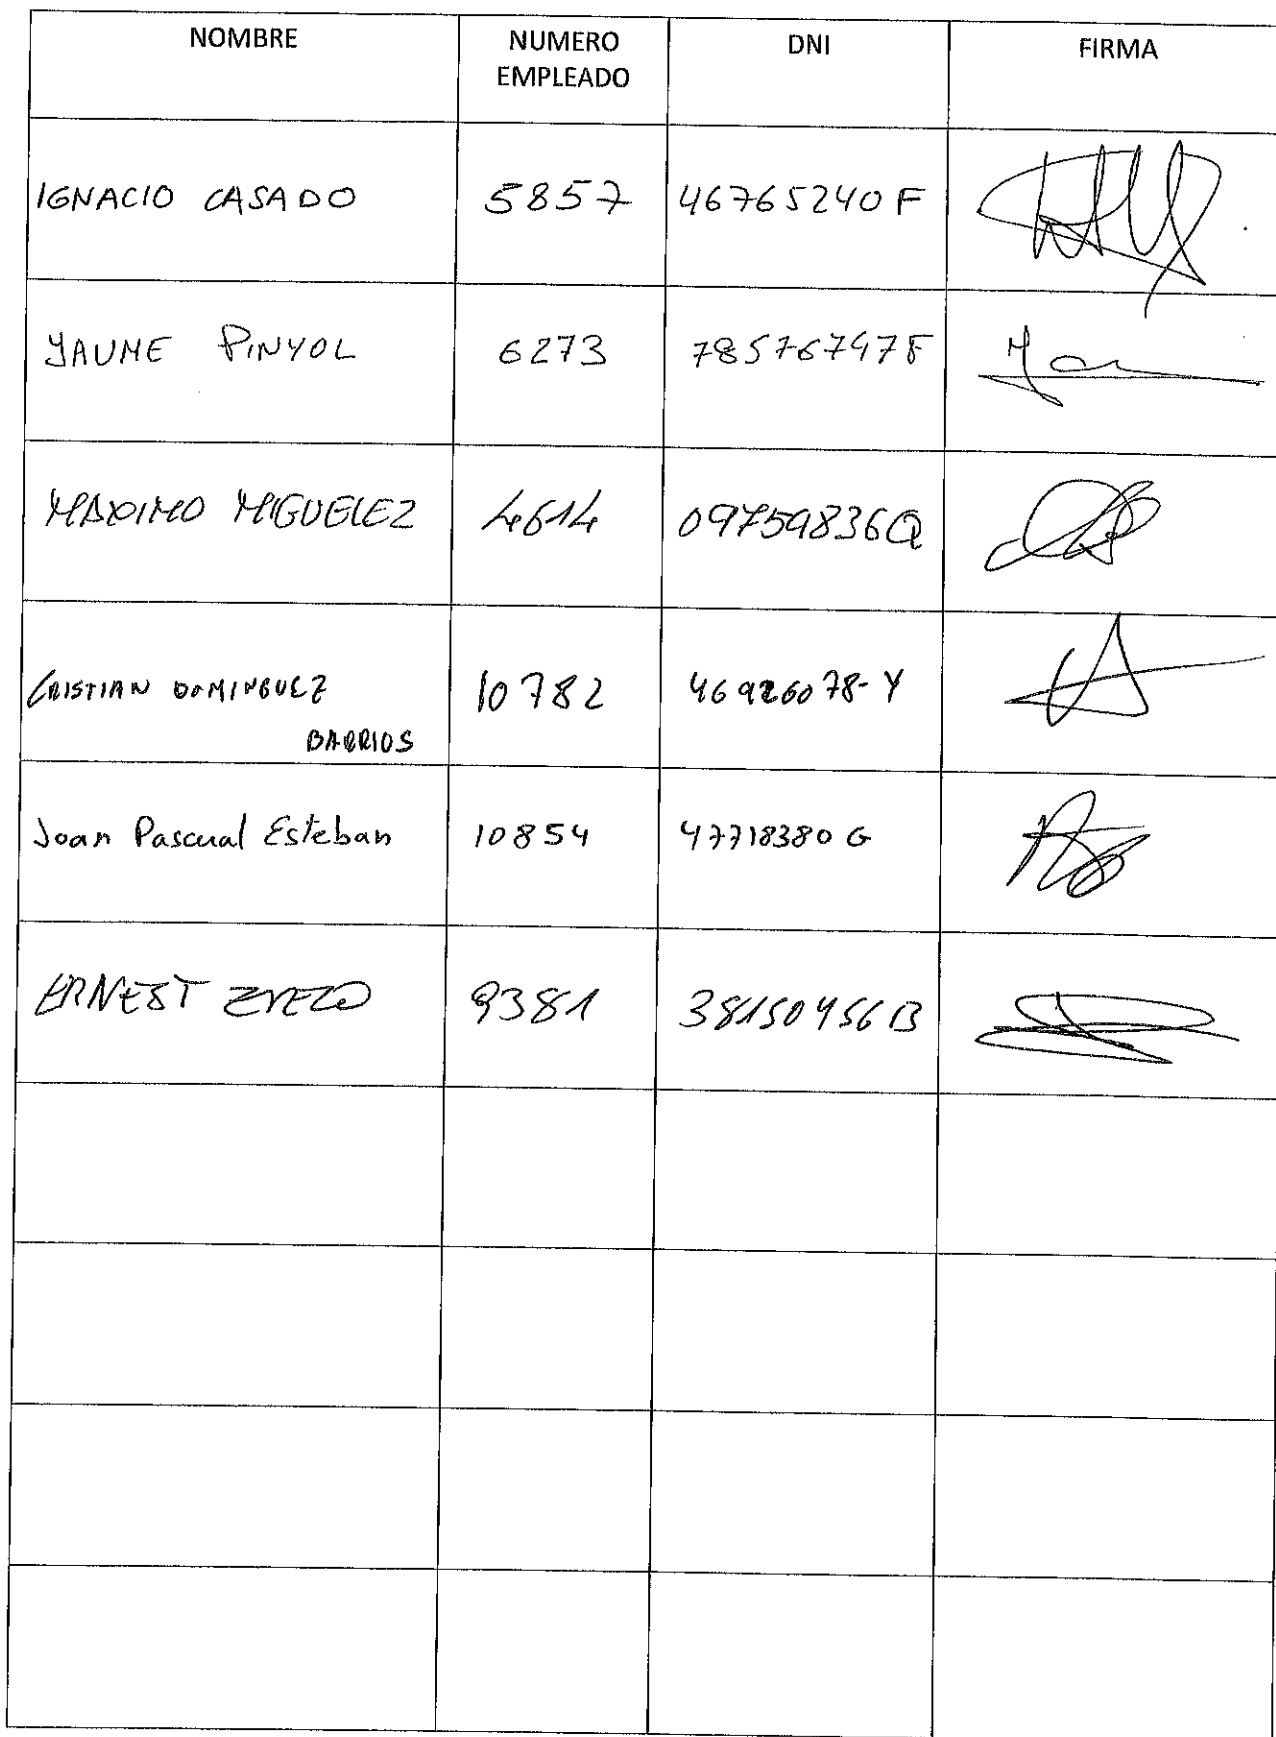 NOMBRE NUMERO EMPLEADO DNI FIRMA
IGNACIO CASADO 5857 46765240 F
JAUME PINYOL 6273 78576747F
MAXIMO MIGUELEZ 4614 09759836Q
CRISTIAN DOMINGUEZ 10782 46926078-Y
BARRIOS
Joan Pascual Esteban 10854 47718380 G
ERNEST 9381 38150456 B